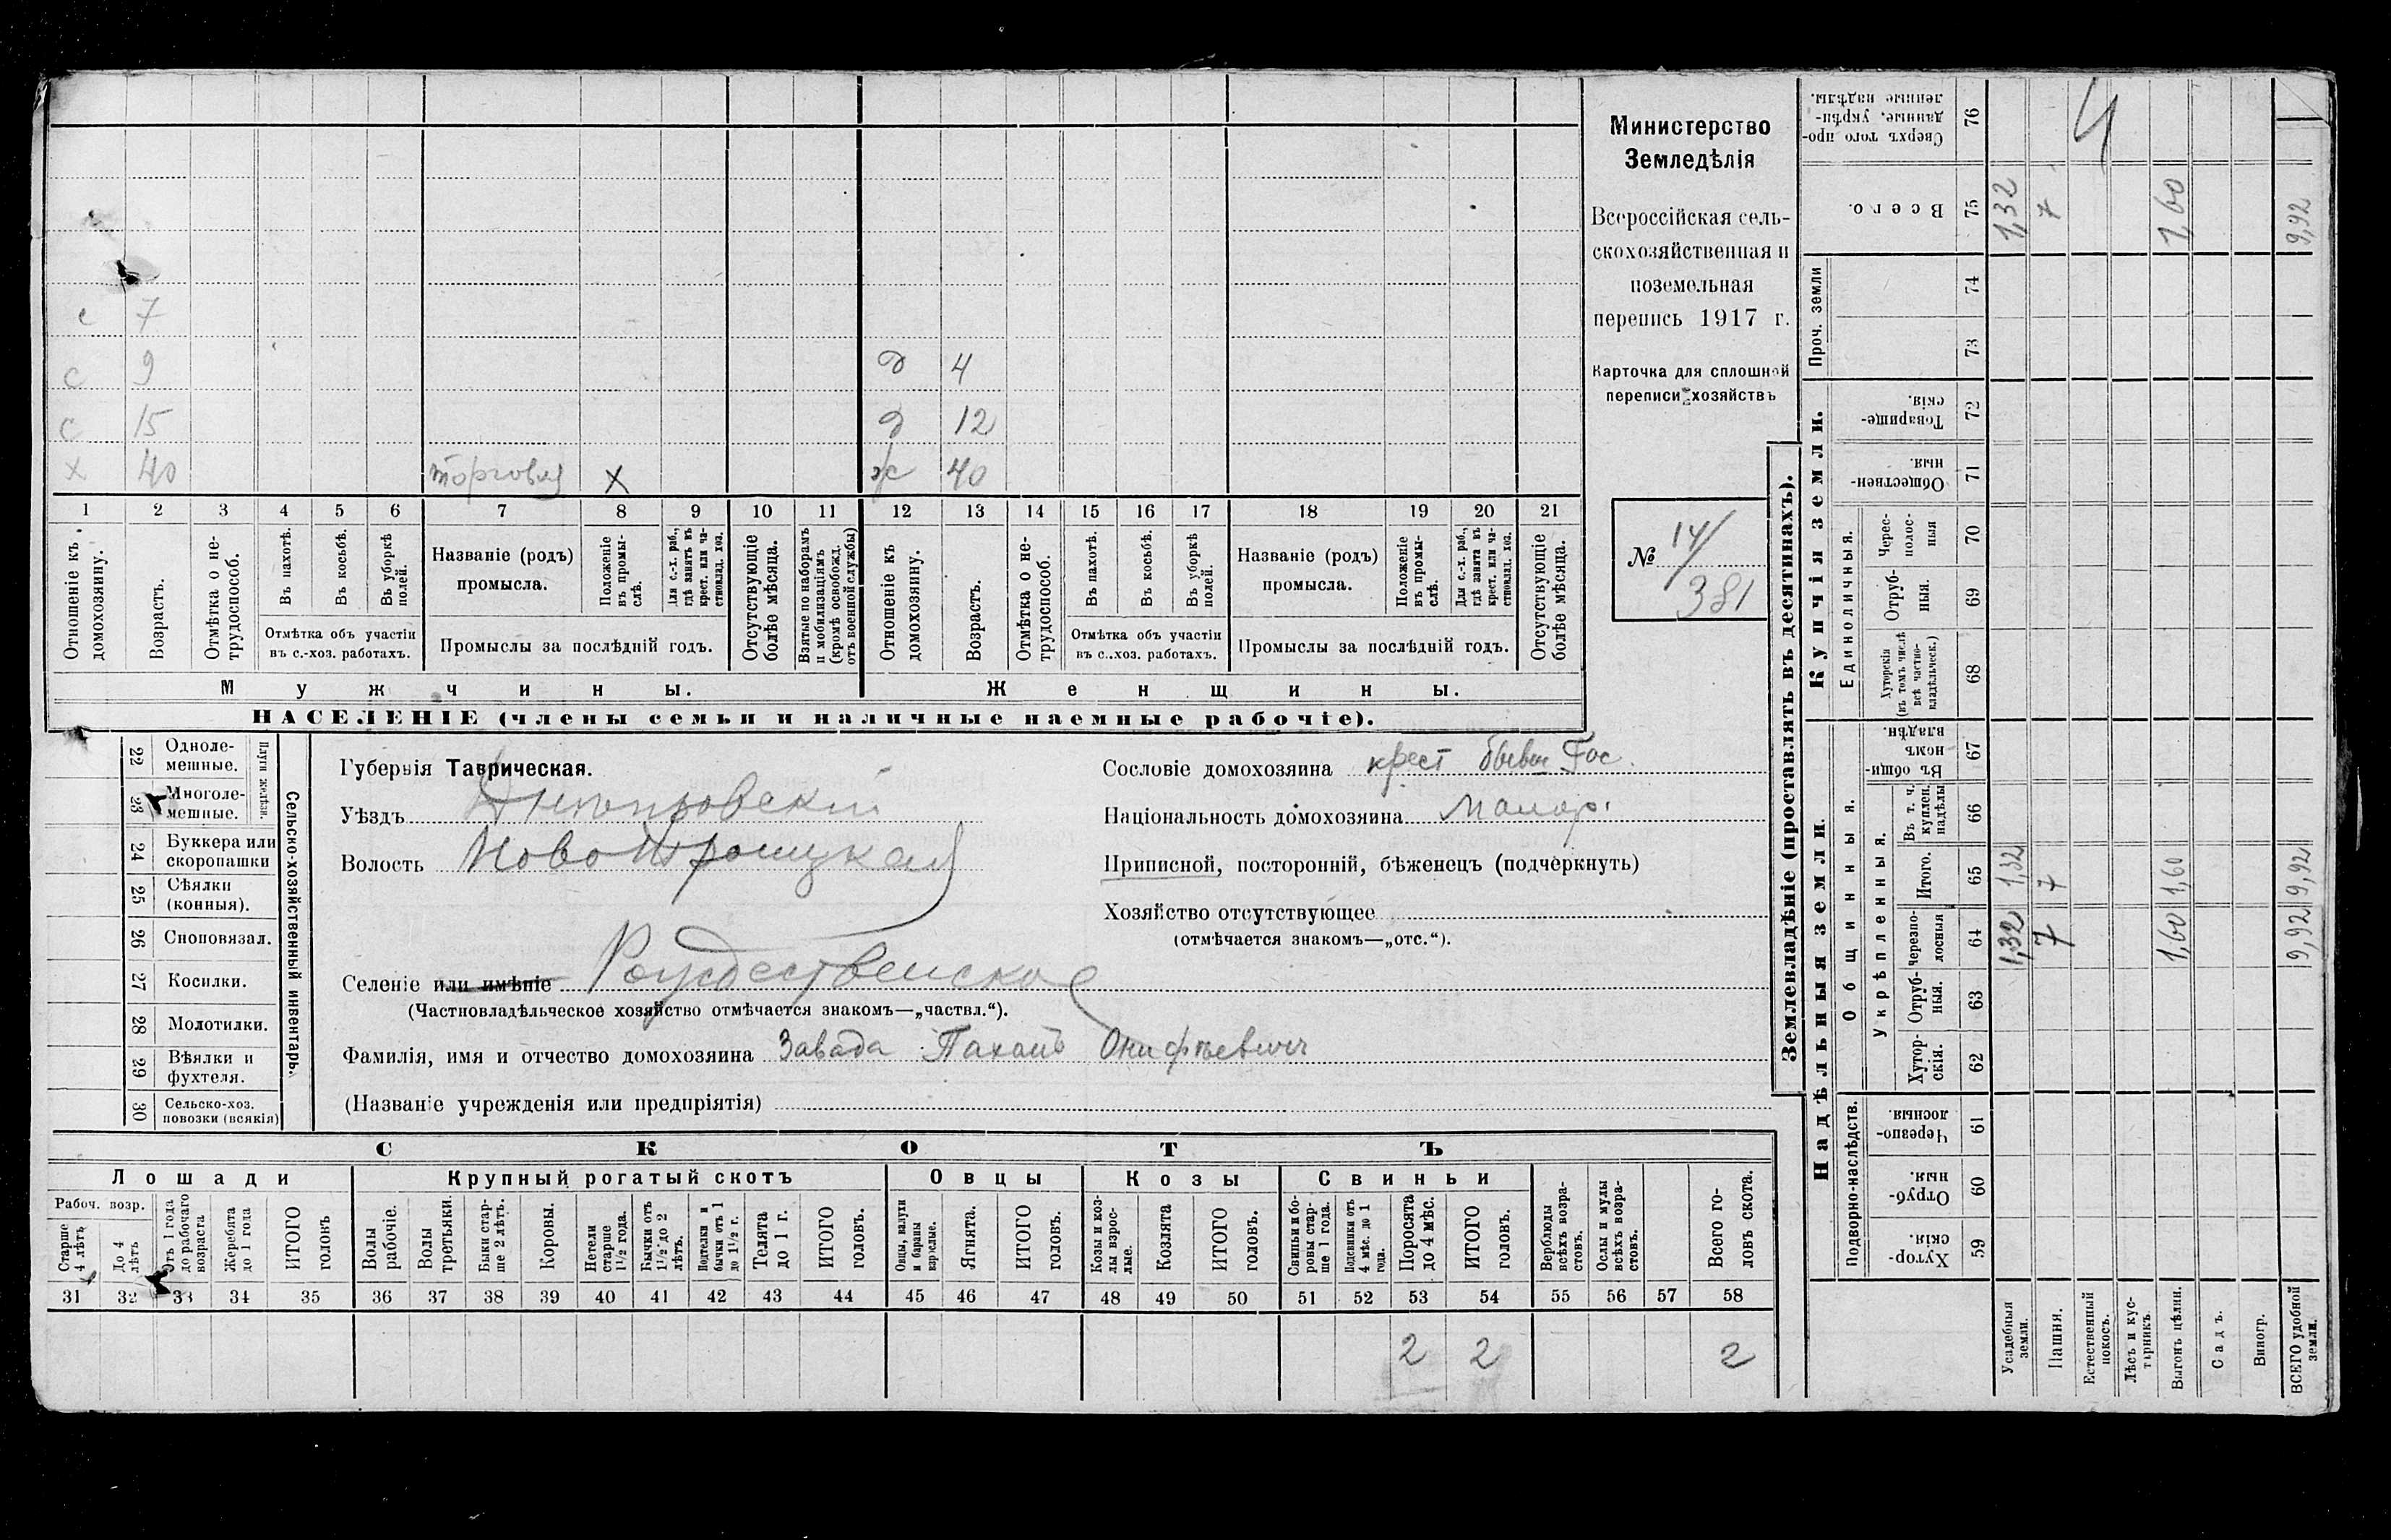 с 7
с 9 д 4
с 15 д 12
х 40 торговля х ж 40
1 2 3 4 5 6 7 8 9 10 11 12 13 14 15 16 17 18 19 20 21
Отношеніе къ домохозяину.
Возрастъ.
Отмѣтка о нетрудоспособ.
Въ пахотѣ.
Въ косьбѣ.
Въ уборкѣ полей.
Отмѣтка объ участіи
въ с.-хоз. работахъ.
Названіе (родъ)
промысла.
Положеніе въ промыслѣ.
Для с.-х. раб., гдѣ занятъ въ крест. или частновлад. хоз.
Промыслы за послѣдній годъ.
Отсутствующіе болѣе мѣсяца.
Взятые по наборамъ и мобилизаціямъ (кромѣ освобожд. отъ военной службы)
Отношеніе къ домохозяину.
Возрастъ.
Отмѣтка о нетрудоспособ.
Въ пахотѣ.
Въ косьбѣ.
Въ уборкѣ полей.
Отмѣтка объ участіи
въ с..хоз. работахъ.
Названіе (родъ)
промысла.
Положеніе въ промыслѣ.
Для с.-х. раб., гдѣ занята въ крест. или частновлад. хоз.
Промыслы за послѣдній годъ.
Отсутствующіе болѣе мѣсяца.
Мужчины. Женщины.
НАСЕЛЕНІЕ (члены семьи и наличные наемные рабочіе).
Министерство
Земледѣлія
Всероссійская сель-
скохозяйственная и
поземельная
перепись 1917 г.
Карточка для сплошной
переписи хозяйствъ
№ 14/
381
22 Одноле-
мешные.
23 Многоле-
мешные.
Плуги желѣзн.
24 Буккера или
скоропашки
25 Сѣялки
(конныя).
26 Сноповязал.
27 Косилки.
28 Молотилки.
29 Вѣялки и
фухтеля.
30 Сельско-хоз.
повозки (всякія)
Сельско-хозяйственный инвентарь.
Губернія Таврическая.
Уѣздъ Днѣпровскій
Волость Новотроицкая
Селеніе или имѣніе Рождественское
(Частновладѣльческое хозяйство отмѣчается знакомъ—„частвл.“).
Фамилія, имя и отчество домохозяина Завада Пахомъ Онифріевичъ
(Названіе учрежденія или предпріятія)
Сословіе домохозяина крест бывш Гос.
Національность домохозяина Малор.
Приписной, посторонній, бѣженецъ (подчеркнуть)
Хозяйство отсутствующее
(отмѣчается знакомъ—„отс.“).
СКОТЪ
Лошади Крупный рогатый скотъ Овцы Козы Свиньи
Рабоч. возр.
Старше 4 лѣтъ
До 4 лѣтъ
Отъ 1 года до рабочаго возраста
Жеребята до 1 года
ИТОГО головъ
Волы рабочіе.
Волы третьяки.
Быки старше 2 лѣтъ.
Коровы.
Нетели старше 1½ года.
Бычки отъ 1½ до 2 лѣтъ.
Подтелки и бычки отъ 1 до 1½ г.
Телята до 1 г.
ИТОГО головъ.
Овцы, валухи и бараны взрослые.
Ягнята.
ИТОГО головъ.
Козы и козлы взрослые.
Козлята
ИТОГО головъ.
Свиньи и боровы старше 1 года.
Подсвинки отъ 4 мѣс. до 1 года.
Поросята до 4 мѣс.
ИТОГО головъ.
Верблюды всѣхъ возрастовъ.
Ослы и мулы всѣхъ возрастовъ.
Всего головъ скота.
31 32 33 34 35 36 37 38 39 40 41 42 43 44 45 46 47 48 49 50 51 52 53 54 55 56 57 58
2 2 2
Землевладѣніе (проставлять въ десятинахъ).
Сверхъ того проданные, укрѣпленные надѣлы. 76 4
Всего. 75 1,32 7 1,60 9,92
Проч. земли 74
73
Купчія земли.
Товарищескія. 72
Общественныя. 71
Единоличныя.
Чересполосныя 70
Отрубныя. 69
Хуторскія (въ томъ числѣ всѣ частновладѣльческ.) 68
Надѣльныя земли.
Общинныя.
Въ общинномъ владѣн. 67
Укрѣпленныя.
Въ т. ч. куплен. надѣлы 66
Итого. 65 1,32 7 1,60 9,92
Черезполосныя 64 1,32 7 1,60 9,92
Отрубныя. 63
Хуторскія. 62
Подворно-наслѣдств.
Черезполосныя. 61
Отрубныя. 60
Хуторскія. 59
Усадебныя земли.
Пашня.
Естественный покосъ.
Лѣсъ и кустарникъ.
Выгонъ цѣлин.
Садъ.
Виногр.
ВСЕГО удобной земли.